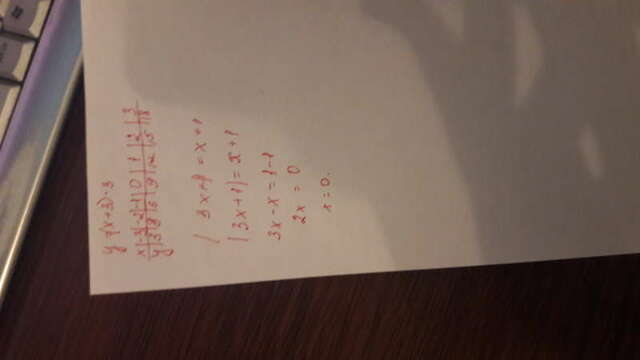 y=(x+3)·3
x|-3|-2|-1|0|1|2|3
y| |3| |9|12|15|18
| 3x+1| = x+1
|3x+1|= x+1
3x-x = 1-1
2x = 0
x=0.